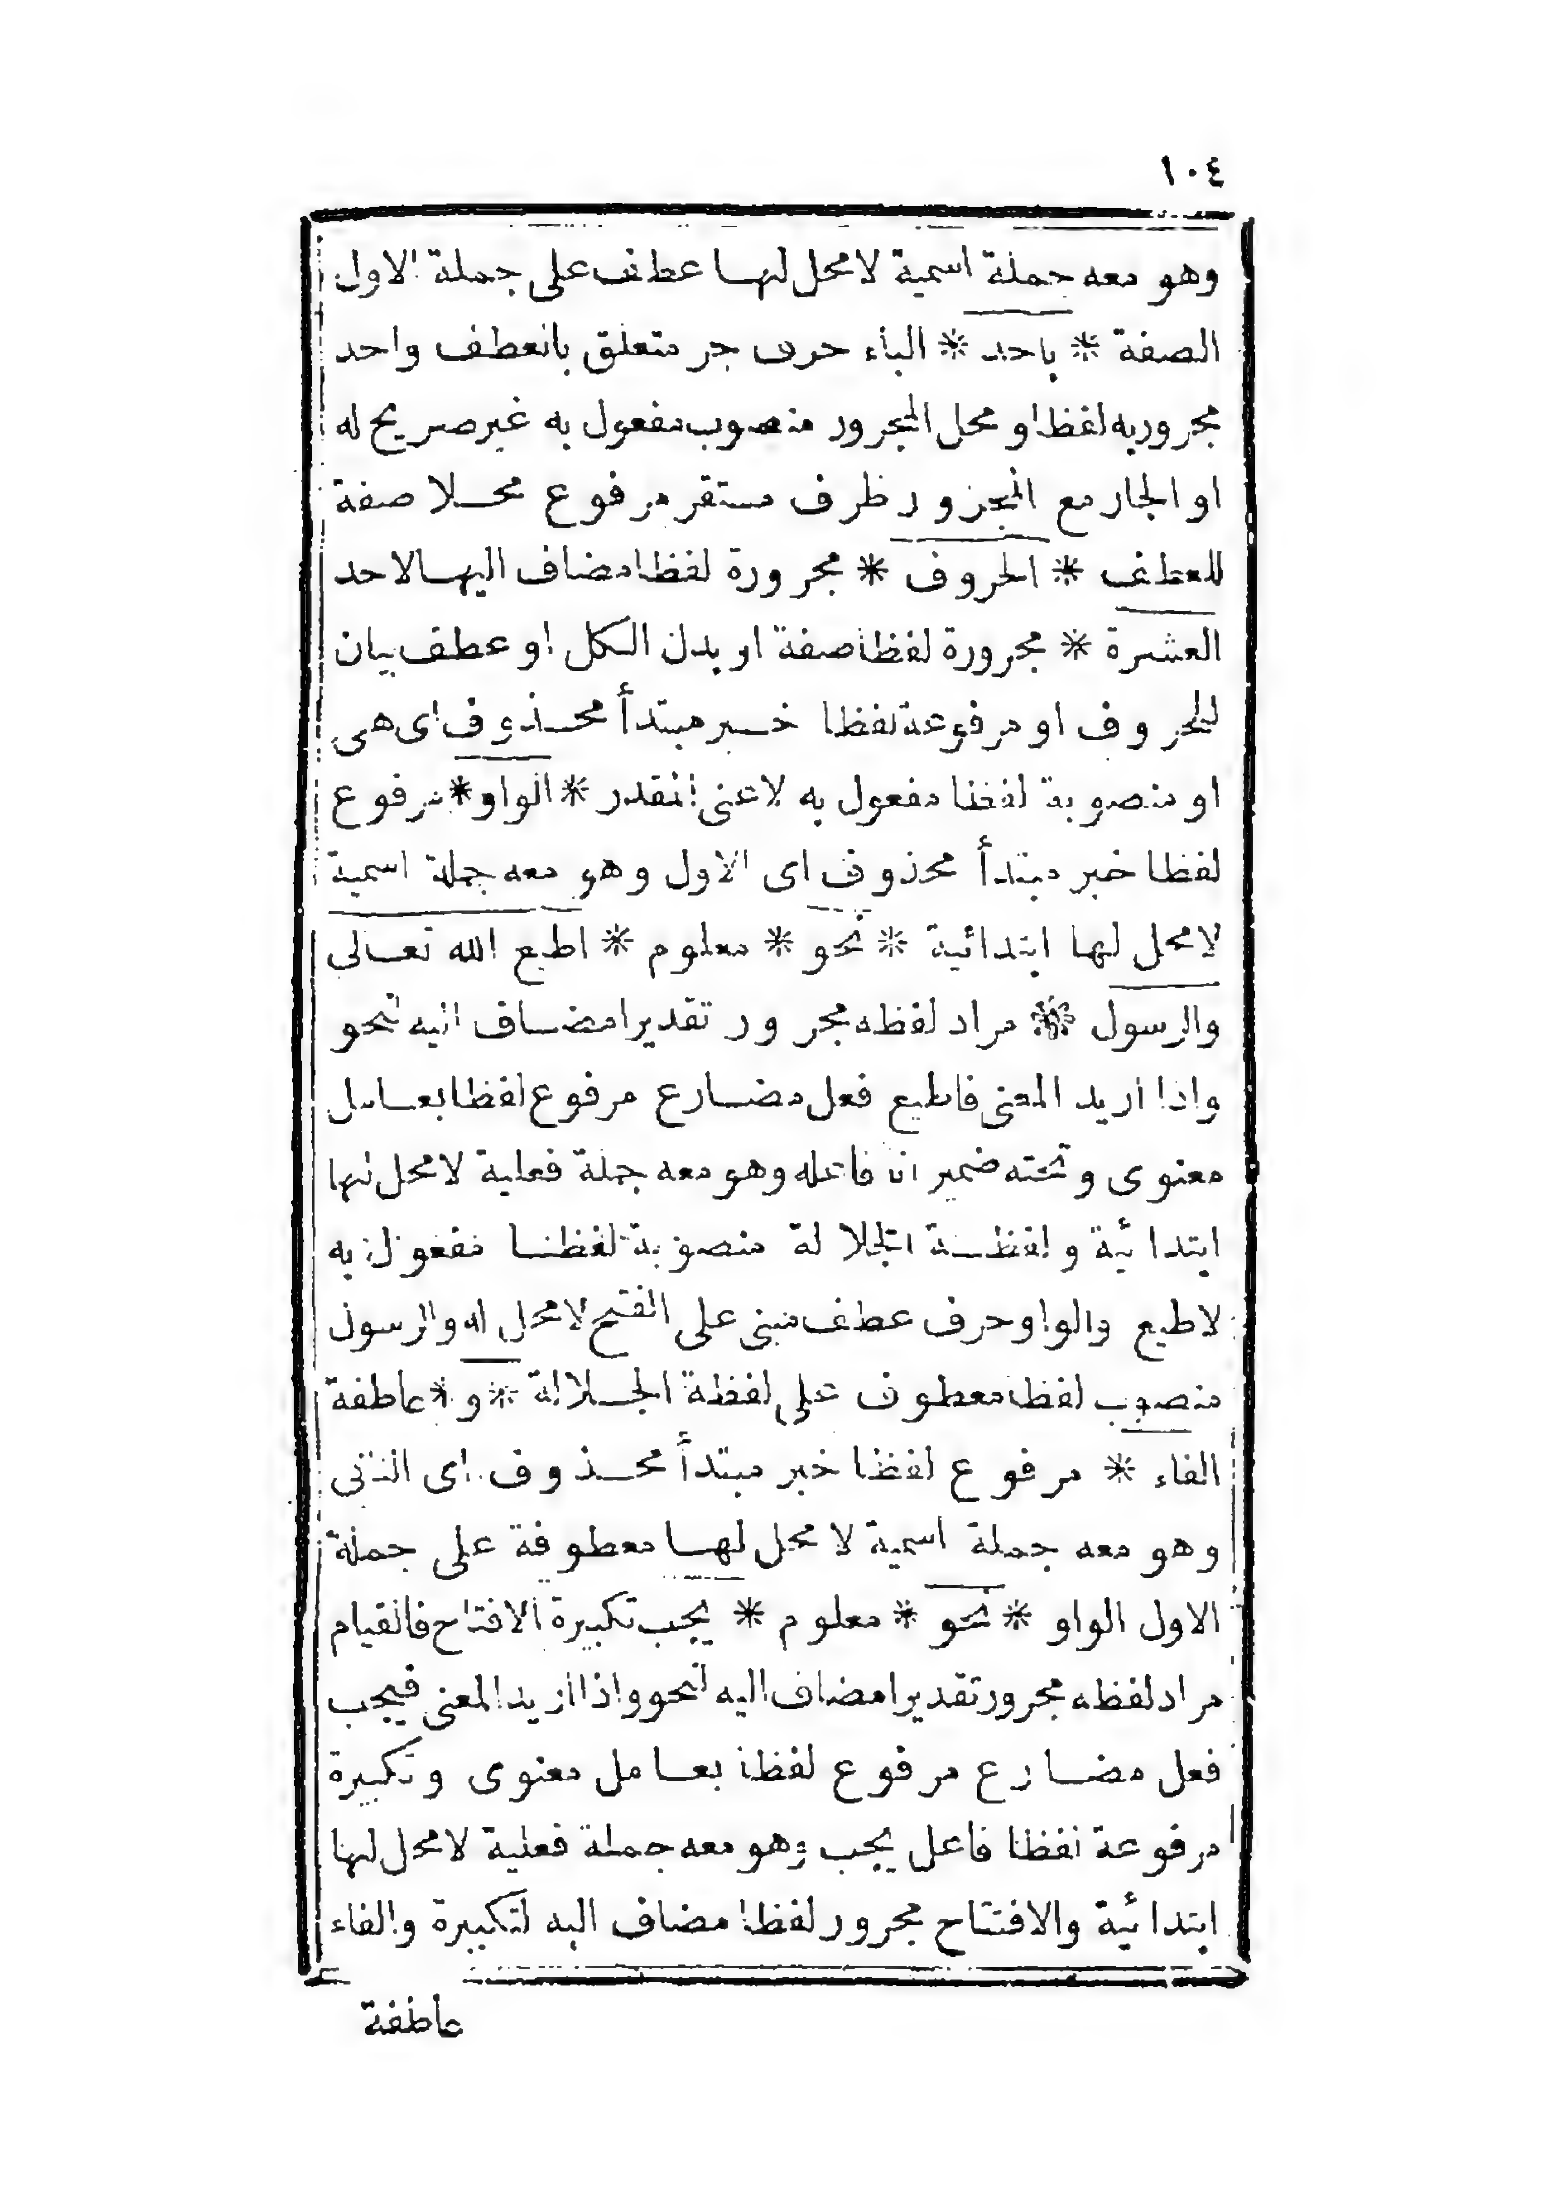 ١٠٤
وهو معه جملة اسمية لامحل لهـا عطف على جملة الاول
الصفة * باحد * الباء حرف جر متعلق بالعطف واحد
مجروربه لفظا ومحل المجرور منصوب مفعول به غير صريح له
او الجار مع المجرور ظرف مستقر مرفوع محـلا صفة
للعطف * الحروف * مجرورة لفظا مضاف اليهـا لاحد
العشرة * مجرورة لفظا صفة او بدل الكل او عطف بيان
للحروف او مرفوعة لفظا خـبر مبتدأ محـذوف اى هى
او منصوبة لفظا مفعول به لاعنى المقدر * الواو * مرفوع
لفظا خبر مبتدأ محذوف اى الاول وهو معه جملة اسمية
لامحل لها ابتدائية * نحو * معلوم * اطيع الله تعـالى
والرسول * مراد لفظه مجرور تقديرا مضـاف اليه لنحو
واذا اريد المعنى فاطيع فعل مضـارع مرفوع لفظا بعـامل
معنوى وتحته ضمير انا فاعله وهو معه جملة فعلية لامحل لها
ابتدائية ولفظـة الجلالة منصوبة لفظـا مفعول به
لاطيع والواو حرف عطف مبنى على الفتح لامحل له والرسول
منصوب لفظا معطوف على لفظة الجـلالة * و * عاطفة
الفاء * مرفوع لفظا خبر مبتدأ محـذوف اى الثانى
وهو معه جملة اسمية لا محل لهـا معطوفة على جملة
الاول الواو * نحو * معلوم * يجب تكبيرة الافتتاح فالقيام
مراد لفظه مجرور تقديرا مضاف اليه لنحو واذا اريد المعنى فيجب
فعل مضـارع مرفوع لفظا بعـامل معنوى وتكبيرة
مرفوعة لفظا فاعل يجب وهو معه جملة فعلية لامحل لها
ابتدائية والافتتاح مجرور لفظا مضاف اليه لتكبيرة والفاء
عاطفة